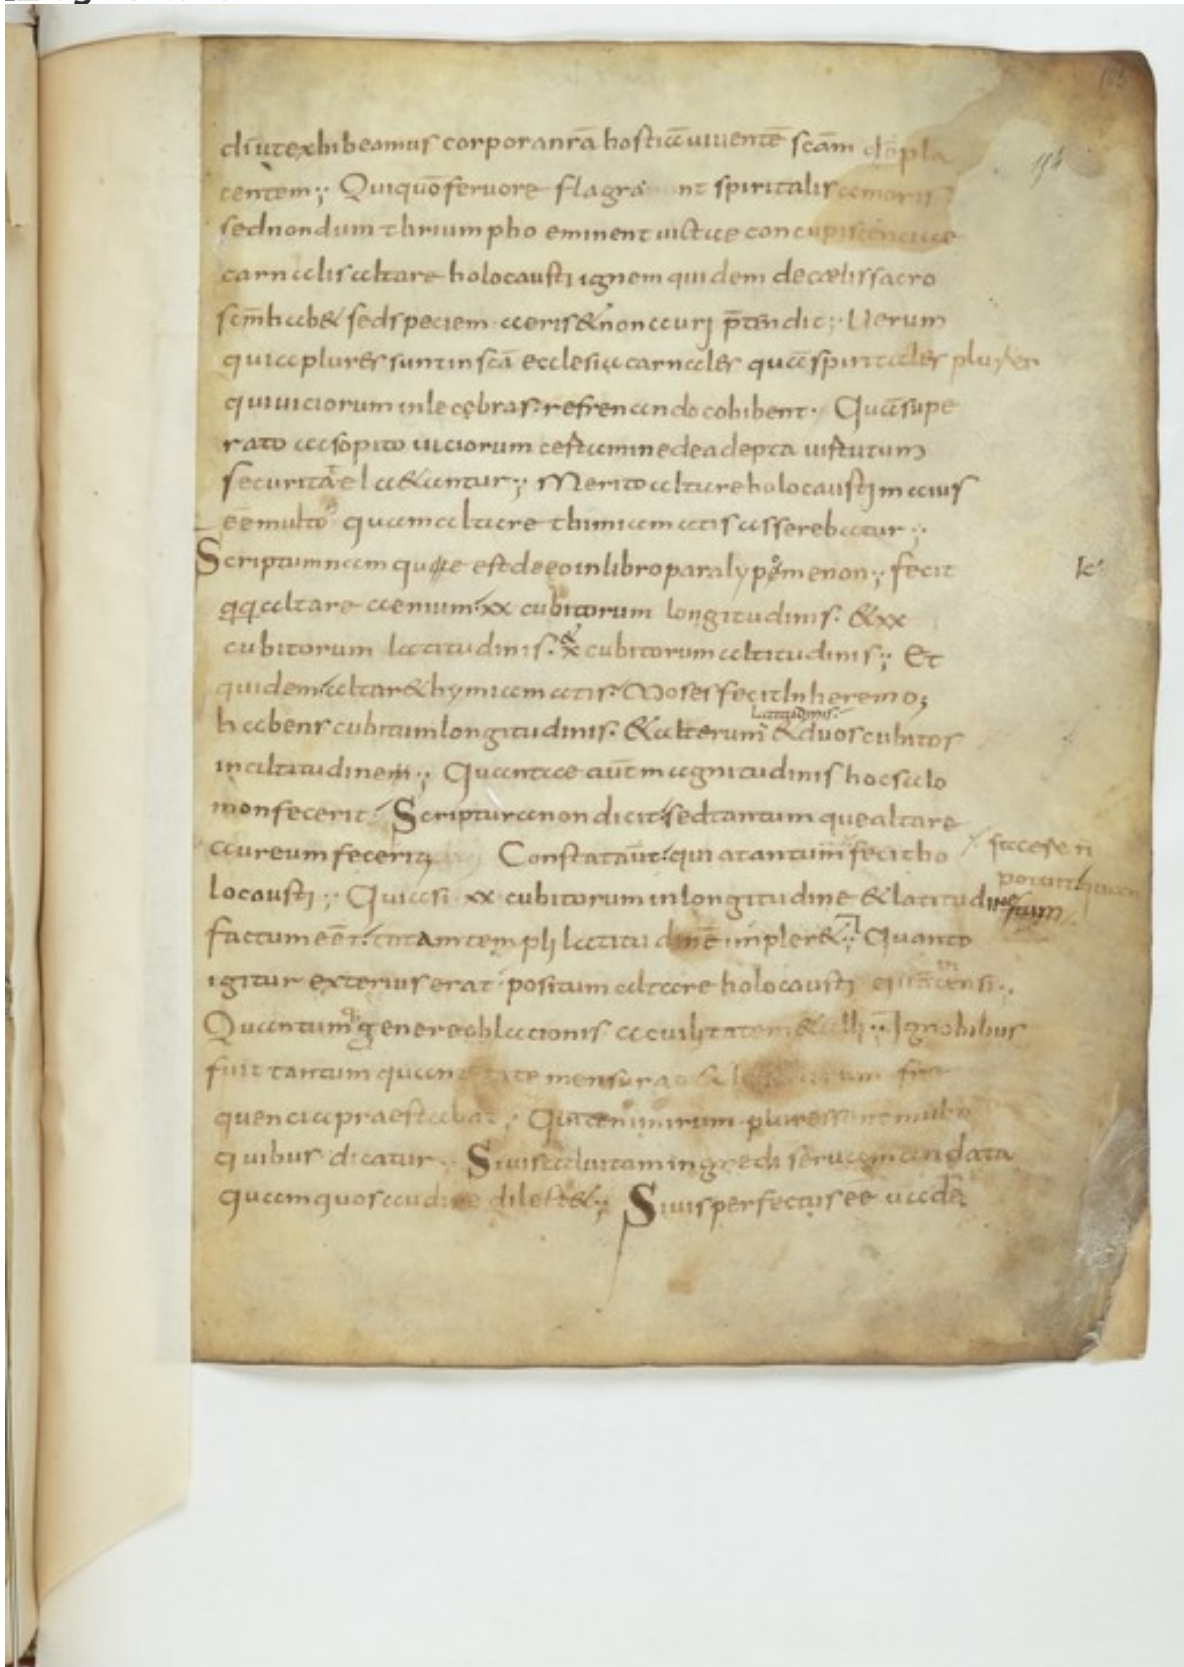 di ut exhibeamus corpora nr̄a hostiā uiuentē scām dō pla
centem;, Qui quō feruore flagra nt spiritalis amoris
sed nondum thriumpho eminent uictae concupiscenciae
carnalis altare holocausti ignem quidem de cælis sacro
scm̄ hab& sed speciem aeris & non auri p̄tendit;, Uerum
quia plures sunt in scā ecclesia carnales quā spiritales
qui uiciorum inlecebras refrenando cohibent. Quā supe
rato ac sopito uiciorum certamine de adepta uirtutum
securitate laetantur;, Merito altare holocausti maius
eē multo quam altare thimiamatis asserebatur;,
Scriptum nam que est de eo in libro paralypomenon;, fecit
qq altare aeneum xx cubitorum longitudinis. & xx
cubitorum latitudinis. & x cubitorum altitudinis;, Et
quidem altar& hymiamatis Moses fecit In heremo;
habens cubitum longitudinis. & alterum latitudinis & duos cubitos
in altitudinem;, Quantae aūt magnitudinis hoc salo
mon fecerit Scriptura non dicit sed tantum que altare
aureum fecerit Constat aūt. quia tantum fecit ho
locausti;, Quia si xx cubitorum in longitudine & latitudine
factum eēt. totam templi latitudinē impler&;, Quanto
igitur exterius erat positum altare holocausti
Quantum genere oblacionis ac uilitate m&alli;, Ignobibus
fuit tantum quantitate mensurae &
quencia praestabat;, Quia nimirum plures sunt multo
quibus dicatur;, Si uis ad uitam ingredi serua mandata
quam quos audire delect&;, Si uis perfectus eē uade
k
154